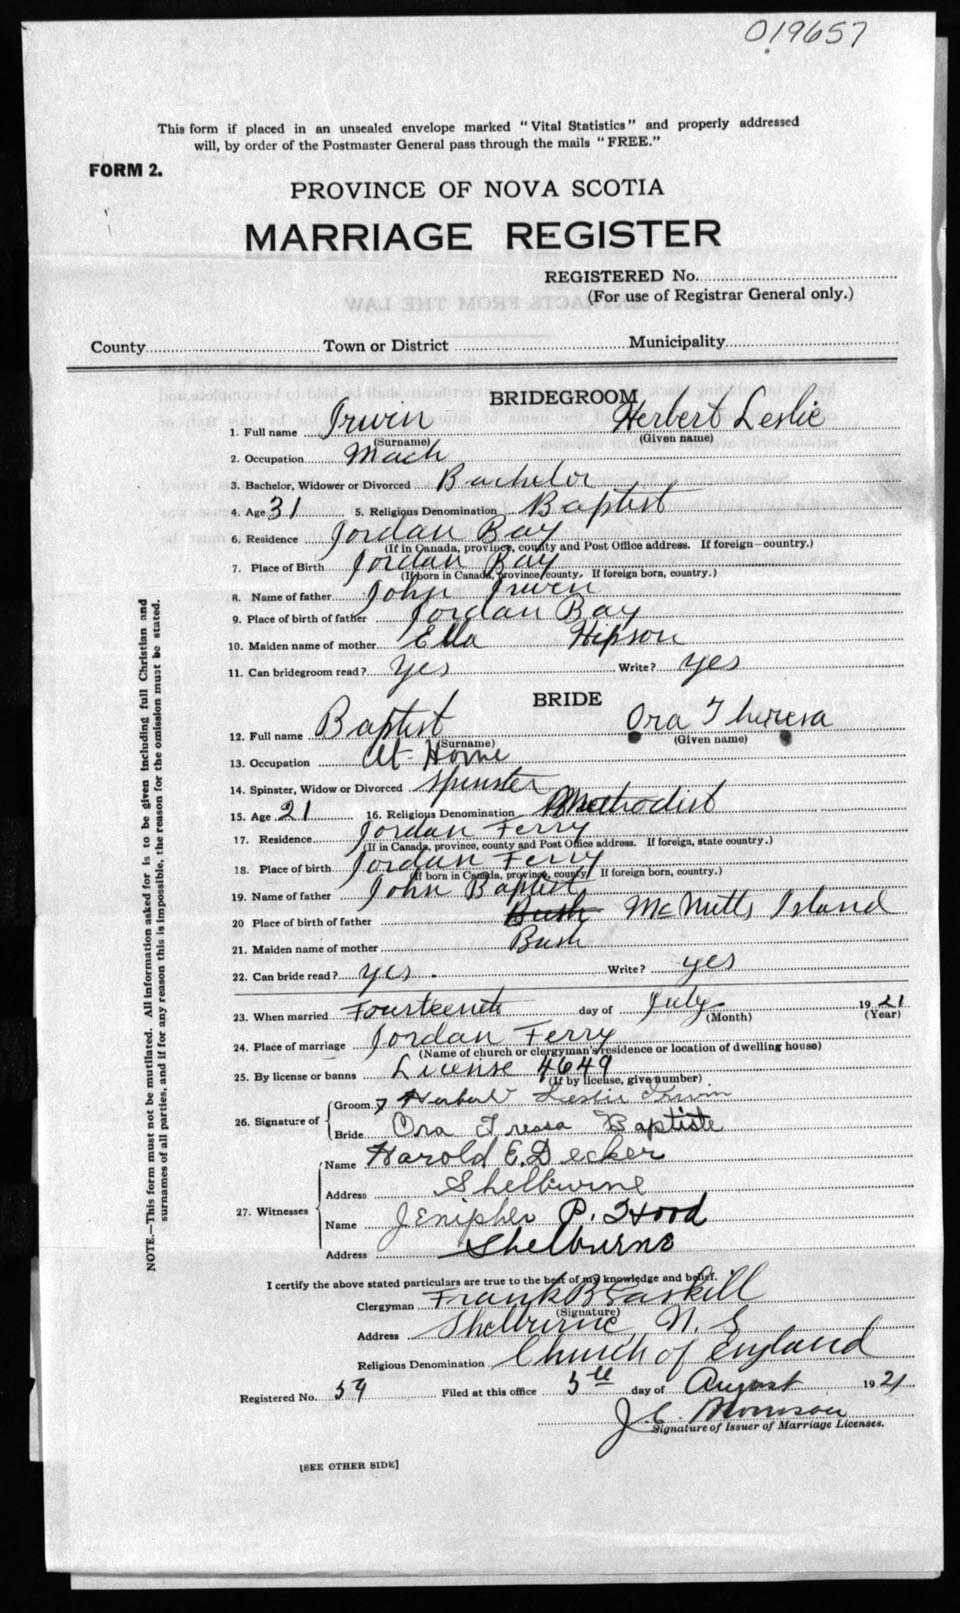 019657
This form if placed in an unsealed envelope marked "Vital Statistics" and properly addressed
will, by order of the Postmaster General pass through the mails "FREE."
FORM 2.
PROVINCE OF NOVA SCOTIA
MARRIAGE REGISTER
REGISTERED No.
(For use of Registrar General only.)
County Town or District Municipality
BRIDEGROOM
1. Full name Irwin Herbert Leslie
(Surname) (Given name)
2. Occupation Mach
3. Bachelor, Widower or Divorced Bachelor
4. Age 31 5. Religious Denomination Baptist
6. Residence Jordan Bay
(If in Canada, province, county and Post Office address. If foreign—country.)
7. Place of Birth Jordan Bay
(If born in Canada, province/county. If foreign born, country.)
8. Name of father John Irwin
9. Place of birth of father Jordan Bay
10. Maiden name of mother Ella Hipson
11. Can bridegroom read? yes Write? yes
BRIDE
12. Full name Baptist Ora Theresa
(Surname) (Given name)
13. Occupation At Home
14. Spinster, Widow or Divorced Spinster
15. Age 21 16. Religious Denomination Methodist
17. Residence Jordan Ferry
(If in Canada, province, county and Post Office address. If foreign, state country.)
18. Place of birth Jordan Ferry
(If born in Canada, province, county. If foreign born, country.)
19. Name of father John Baptist
20 Place of birth of father Bush McNutts Island
21. Maiden name of mother Bush
22. Can bride read? yes. Write? yes
23. When married Fourteenth day of July 1921
(Month) (Year)
24. Place of marriage Jordan Ferry
(Name of church or clergyman's residence or location of dwelling house)
25. By license or banns License 4649
(If by license, give number)
26. Signature of Groom Herbert Leslie Irwin
Bride Ora Treasa Baptiste
27. Witnesses Name Harold E. Decker
Address Shelburne
Name Jenipher P. Hood
Address Shelburne
I certify the above stated particulars are true to the best of my knowledge and belief.
Clergyman Frank B Gaskill
(Signature)
Address Shelburne N. S
Religious Denomination Church of England
Registered No. 59 Filed at this office 5th day of August 1921
J. C. Morrison
Signature of Issuer of Marriage Licenses.
[SEE OTHER SIDE]
NOTE.—This form must not be mutilated. All information asked for is to be given including full Christian and
surnames of all parties, and if for any reason this is impossible, the reason for the omission must be stated.